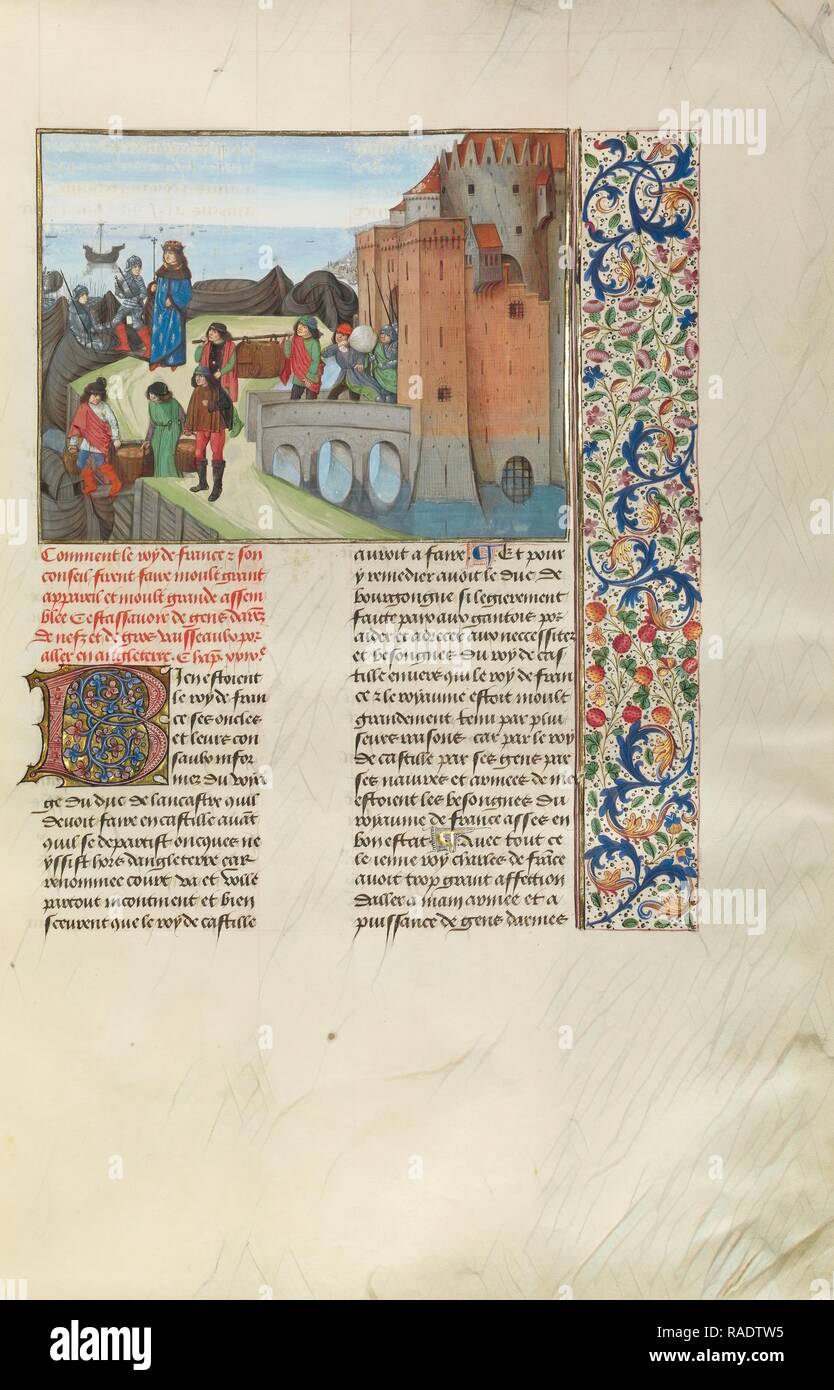 Comment le roy de france ⁊ son
conseil firent faire moult grant
appareil et moult grande assem
blee Cestassavoir de gens darmes
de nefz et de gros vaisseaulx por
aller en angleterre. Chap.
Bien estoient
le roy de fran
ce ses oncles
et leurs con
saulx infor
mez du voia
ge du duc de lancastre quil
devoit faire en castille avāt
quil se departist oncques ne
yssist hors dangleterre car
renommee court va et volle
partout incontinent et bien
sceurent que le roy de castille
auroit a faire. ¶ Et pour
y remedier avoit le duc de
bourgongne si legierement
faitte paix aux gantois por
aider et adrecer aux necessitez
et besongnes du roy de cas
tille envers qui le roy de fran
ce ⁊ le royaume estoit moult
grandement tenu par plui
seurs raisons car par le roy
de castille par ses gens par
ses navires et armees de mer
estoient les besongnes du
royaume de france asses en
bon estat ¶ Avec tout ce
le ienne roy charles de frāce
avoit trop grant affection
daller a main armee et a
puissance de gens darmes
alamy
alamy
Image ID: RADTW5
www.alamy.com